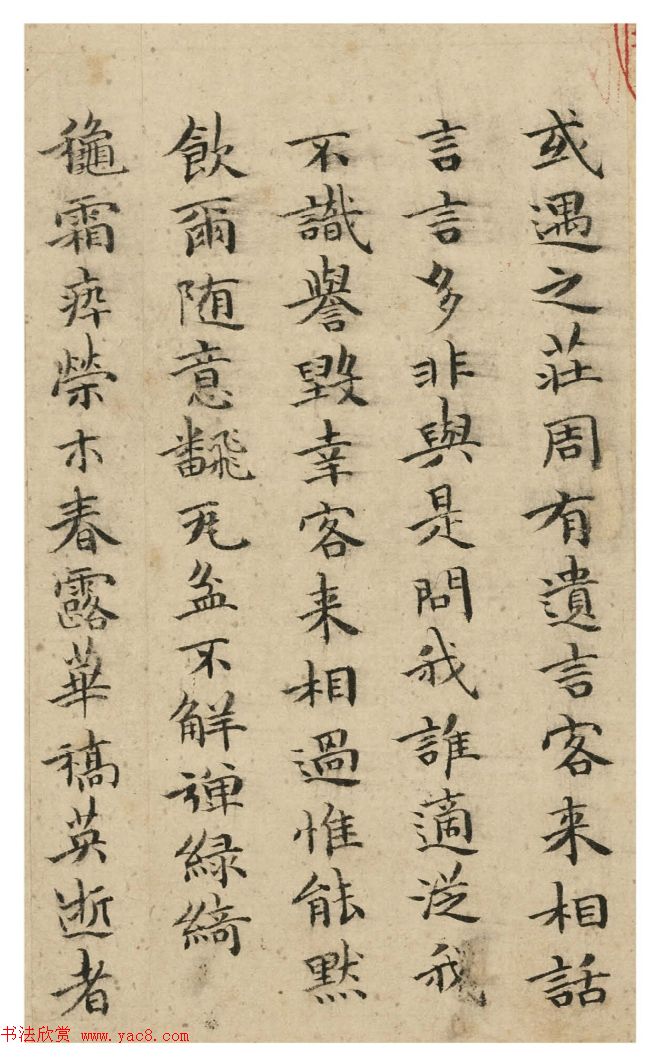 或遇之莊周有遺言客来相話
言言多非與是問我誰適從我
不識譽毀幸客来相過惟能默
飲爾随意飜瓦盆不解彈綠綺
龝霜瘁榮木春露華槁英逝者
书法欣赏 www.yac8.com